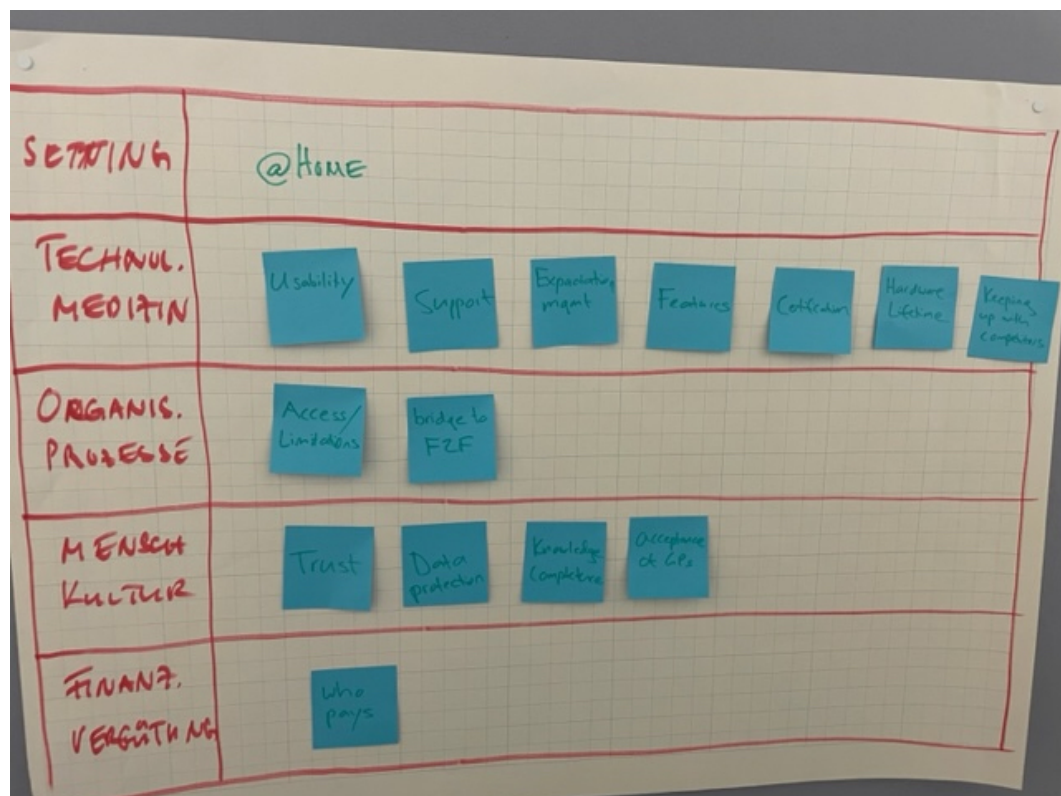 SETTING
@HOME
TECHNOL.
MEDIZIN
Usability
Support
mgmt
Features
Hardware
Lifetime
Keeping
up with
competitors
ORGANIS.
PROZESSE
Access/
Limitations
bridge to
F2F
MENSCH
KULTUR
Trust
Data
protection
Knowledge
acceptance
of GPs
FINANZ.
VERGÜTUNG
who
pays